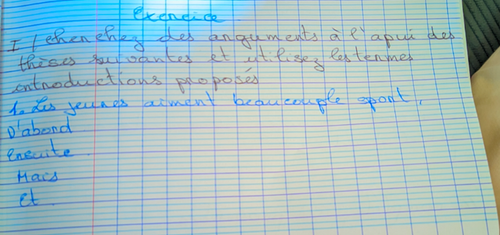 Exercice
I / cherchez des arguments à l'apui des
thèses suivantes et utilisez les termes
introductions proposés
1. Les jeunes aiment beaucouple sport.
D'abord
Ensuite
Mais
et